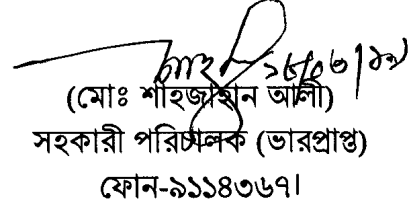 (মোঃ শাহজাহান আলী)
সহকারী পরিচালক (ভারপ্রাপ্ত)
ফোন-৯১১৪৩৬৭।